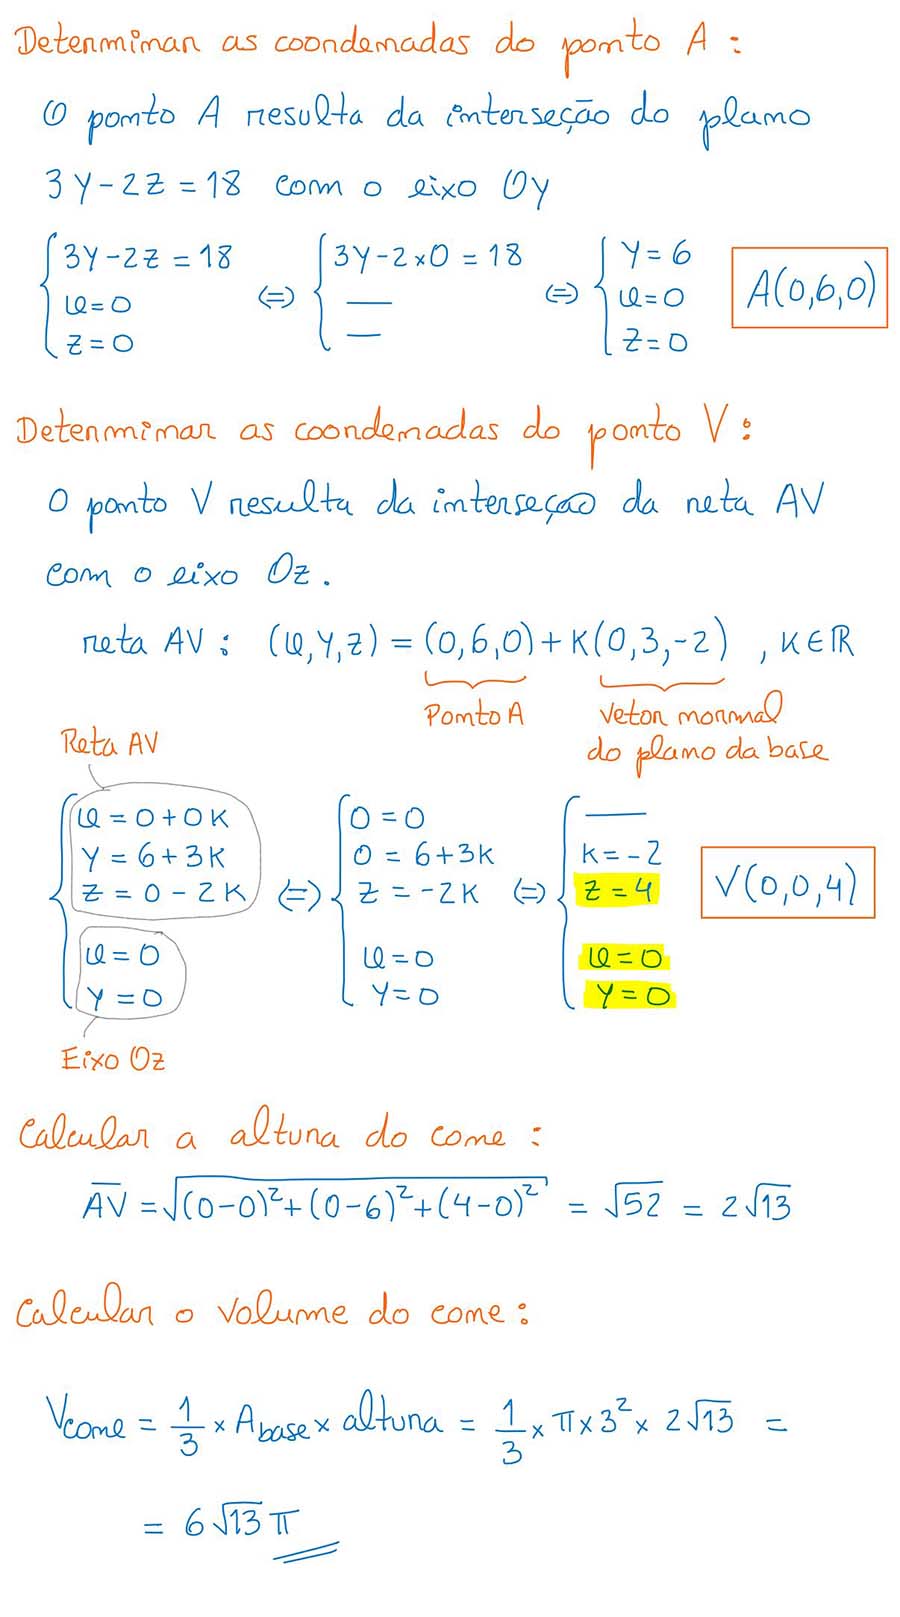 Determinar as coordenadas do ponto A :
O ponto A resulta da interseção do plano
3y-2z = 18 com o eixo Oy
{ 3y-2z = 18 ; x=0 ; z=0 ⇔ { 3y-2×0 = 18 ; — ; — ⇔ { y=6 ; x=0 ; z=0 A(0,6,0)
Determinar as coordenadas do ponto V :
O ponto V resulta da interseção da reta AV
com o eixo Oz.
reta AV : (x,y,z) = (0,6,0)+k(0,3,-2) , k∈ℝ
Ponto A
Vetor normal
do plano da base
Reta AV
{ x = 0+0k ; y = 6+3k ; z = 0-2k ; x=0 ; y=0 ⇔ { 0=0 ; 0 = 6+3k ; z = -2k ; x=0 ; y=0 ⇔ { — ; k=-2 ; z=4 ; x=0 ; y=0 V(0,0,4)
Eixo Oz
Calcular a altura do cone :
A̅V̅ = √((0-0)²+(0-6)²+(4-0)²) = √52 = 2√13
Calcular o volume do cone :
Vcone = 1/3 × Abase × altura = 1/3 × π×3² × 2√13 =
= 6√13 π